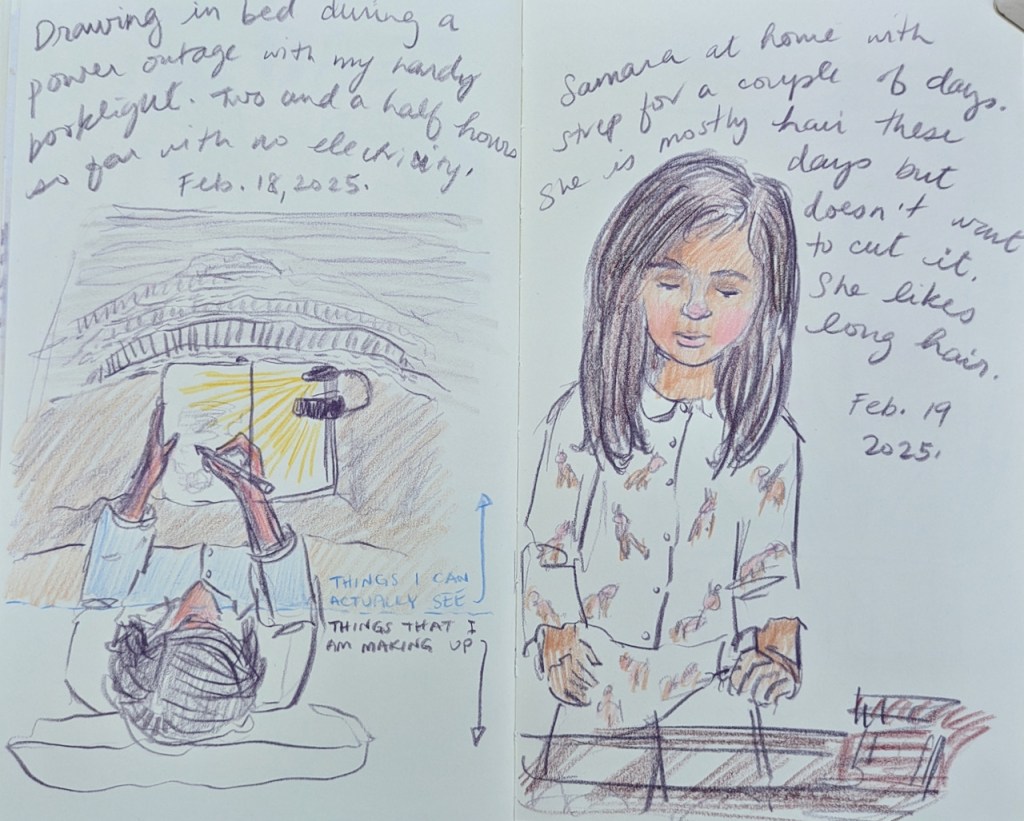 Drawing in bed during a
power outage with my handy
booklight. Two and a half hours
so far with no electricity.
Feb. 18, 2025.
THINGS I CAN
ACTUALLY SEE
THINGS THAT I
AM MAKING UP
Samara at home with
strep for a couple of days.
She is mostly hair these
days but
doesn't want
to cut it.
She likes
long hair.
Feb. 19
2025.